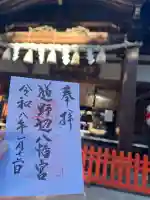 奉拝
熊野初八幡宮
令和八年一月十二日